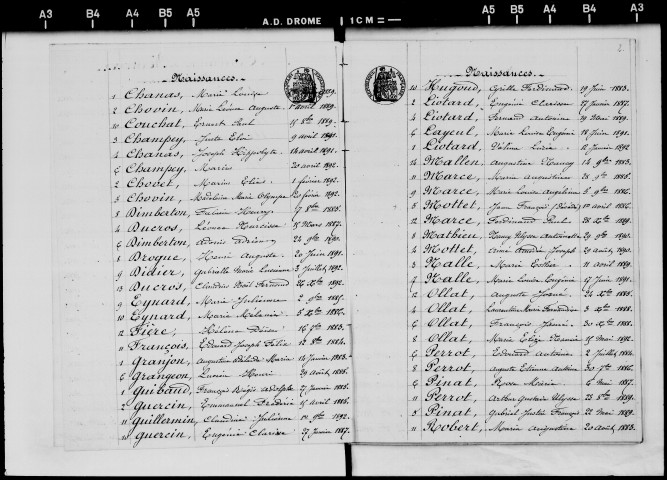 A3 B4 A4 B5 A5 A.D. DROME 1 CM A5 B5 A4 B4 A3
Naissances.
1 Chanas, Marie Louise 1889.
2 Chovin, Marie Louise Auguste 1er avril 1889.
10 Couchat, Ernest Paul 15 8bre 1889.
3 Champey, Juste Elie 9 avril 1891.
4 Chanas, Joseph Hippolyte 14 avril 1891.
6 Champey, Marius 20 avril 1892.
2 Chovet, Marius Elie 1 février 1892.
3 Chovin, Madeleine Marie Olympe 20 février 1892.
Bimberton, Henry 17 8bre 1885.
4 Ducros, Léonce Narcisse 15 Mars 1887.
6 Bimberton, Adonis Adrien 24 9bre 1890.
8 Brogue, Henri Auguste 20 Juin 1891.
9 Didier, Gabrielle Lucienne 3 Juillet 1892.
13 Ducros, Claudius Noël Fernand 24 Xbre 1892.
9 Eynard, Marie Julienne 2 9bre 1885.
10 Eynard, Marie Mélanie 5 Xbre 1886.
12 Fière, Hélène Désirée 16 7bre 1883.
11 François, Edouard Joseph Félix 12 8bre 1884.
1 Granjon, Augustin Marie 14 Janvier 1883.
6 Grangeon, Lucien Henri 29 Août 1886.
1 Guibaud, François Régis Adolphe 27 Janvier 1886.
2 Guercin, Emmanuel Frédéric 15 avril 1886.
11 Guillermin, Claudine Julienne 10 9bre 1892.
10 Guercin, Eugénie Clarisse 27 Janvier 1887.
2.
Naissances.
10 Hugoud, Cyrille Ferdinand 29 Juin 1883.
2 Liotard, Eugénie Clarisse 17 Janvier 1887.
4 Liotard, Fernand Antoine 29 Mars 1889.
6 Layeul, Marie Louise Eugénie 18 Juin 1891.
1 Liotard, Lucie 12 Janvier 1892
14 Mallen, Augustine Nancy 14 9bre 1883.
11 Marce, Marie Augustine 28 9bre 1885.
9 Marce, Marie Louise Angéline 5 9bre 1886.
5 Mottet, Jean François 10 août 1886.
12 Marce, Ferdinand Paul 28 Xbre 1889.
8 Mathieu, Fanny Antoinette 29 9bre 1890.
4 Mottet, Aimé Joseph 29 août 1890.
3 Nalle, Marie Esther 11 avril 1889.
7 Nalle, Marie Louise Eugénie 17 Juin 1891.
12 Ollat, Auguste Xavier 24 Xbre 1885.
4 Ollat, Marie Fernandine 3 Xbre 1888.
6 Ollat, François Xavier 30 Xbre 1888.
8 Ollat, Marie Eliza Noémie 15 Mai 1892.
6 Perrot, Edouard Antoine 2 Juillet 1884.
8 Perrot, Auguste Etienne Antoine 30 7bre 1886.
6 Pinat, 6 Mai 1887.
11 Perrot, Arthur Gustave Ulysse 25 8bre 1889.
5 Pinat, Gabriel Justin François 22 Mai 1889.
11 Robert, Marie Augustine 20 août 1883.